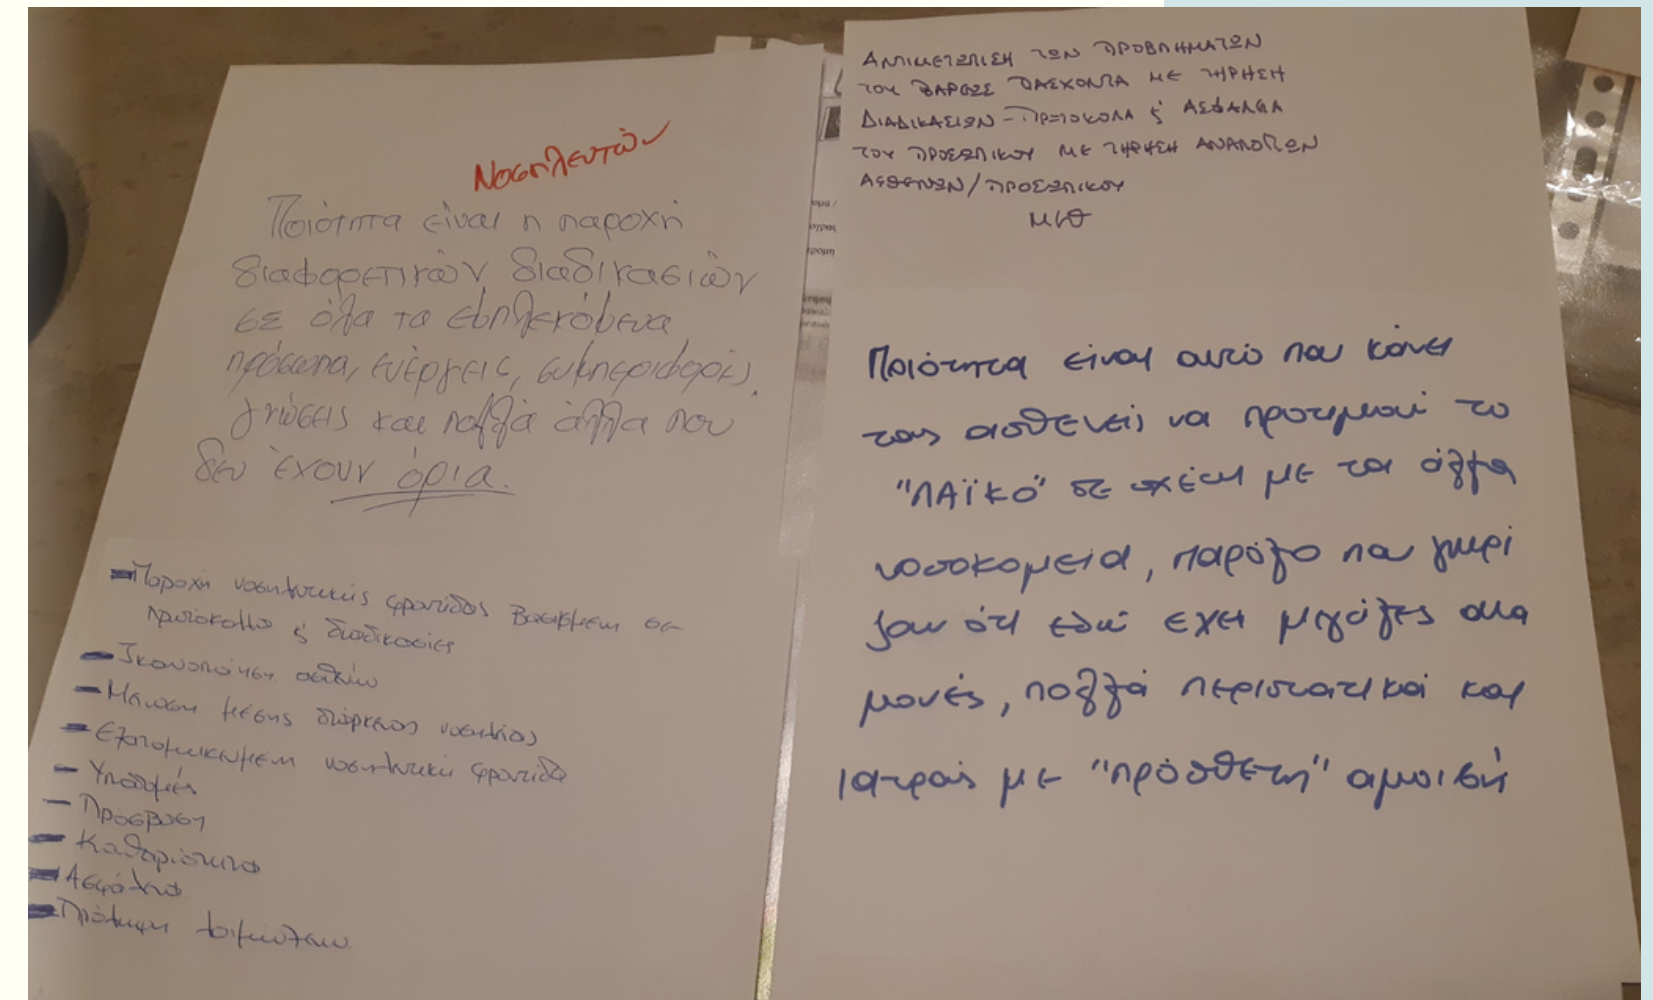 Νοσηλευτών
Ποιότητα είναι η παροχή
διαφορετικών διαδικασιών
σε όλα τα εμπλεκόμενα
πρόσωπα, ενέργειες, συμπεριφορές,
γνώσεις και πολλά άλλα που
δεν έχουν όρια.
- Παροχή νοσηλευτικής φροντίδας βασισμένη σε
πρωτόκολλα ς διαδικασίες
- Ικανοποίηση ασθενών
- Μείωση μέσης διάρκειας νοσηλείας
- Εξατομικευμένη νοσηλευτική φροντίδα
- Υποδομές
- Πρόσβαση
- Καθαριότητα
- Ασφάλεια
- Πρόληψη λοιμώξεων
ΑΝΤΙΜΕΤΩΠΙΣΗ ΤΩΝ ΠΡΟΒΛΗΜΑΤΩΝ
ΤΟΥ ΒΑΡΕΩΣ ΠΑΣΧΟΝΤΑ ΜΕ ΤΗΡΗΣΗ
ΔΙΑΔΙΚΑΣΙΩΝ - ΠΡΩΤΟΚΟΛΑ ς ΑΣΦΑΛΕΙΑ
ΤΟΥ ΠΡΟΣΩΠΙΚΟΥ ΜΕ ΤΗΡΗΣΗ ΑΝΑΛΟΓΙΩΝ
ΑΣΘΕΝΩΝ/ΠΡΟΣΩΠΙΚΟΥ
ΜΕΘ
Ποιότητα είναι αυτό που κάνει
τους ασθενείς να προτιμούν το
"ΛΑΪΚΟ" σε σχέση με τα άλλα
νοσοκομεία, παρόλο που γνωρί
ζουν ότι εδώ έχει μεγάλες ανα
μονές, πολλά περιστατικά και
ιατρούς με "πρόσθετη" αμοιβή